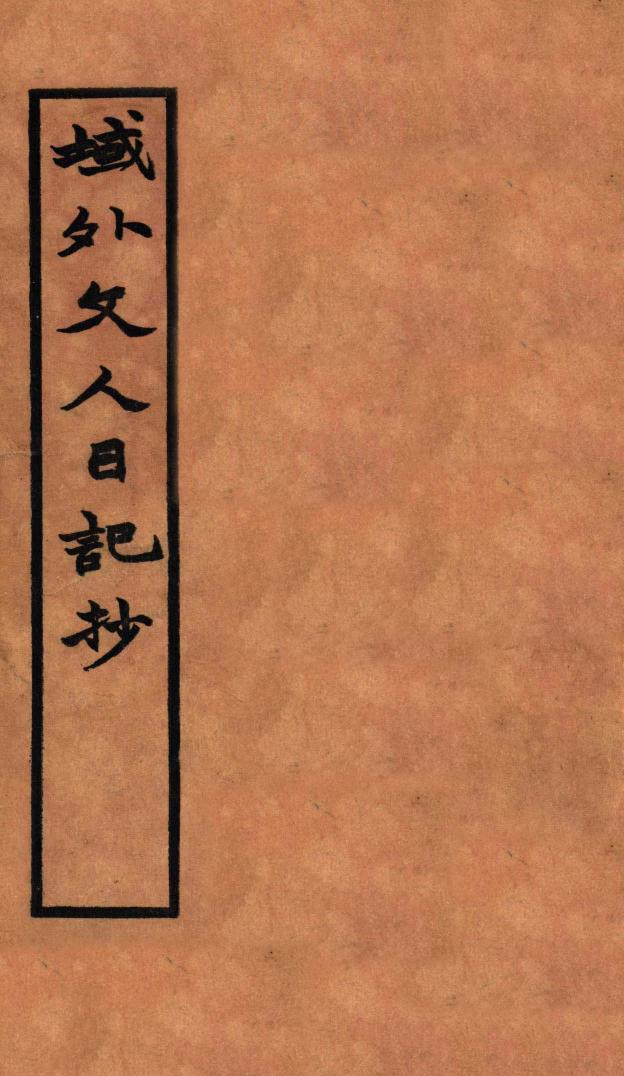 域外文人日記抄